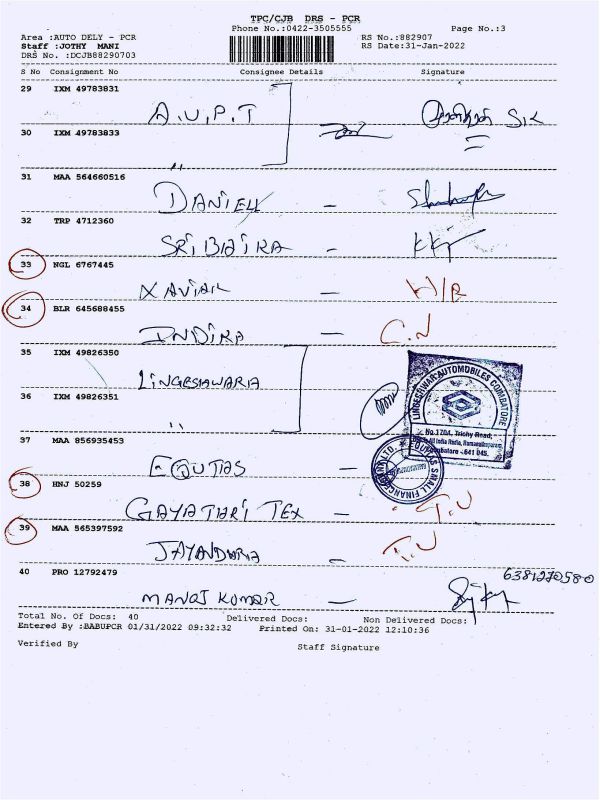 TPC/CJB DRS - PCR
Phone No.:0422-3505555 Page No.:3
Area :AUTO DELY - PCR RS No.:882907
Staff :JOTHY MANI RS Date:31-Jan-2022
DRS No. :DCJB88290703
S No Consignment No Consignee Details Signature
29 IXM 49783831
A.U.P.T
30 IXM 49783833
,,
31 MAA 564660516
DANIELL —
32 TRP 4712360
SRIBAIRA —
33 NGL 6767445
XAVIAR —
34 BLR 645688455
INDIRA — C.N
35 IXM 49826350
LINGESHWARIA
36 IXM 49826351
,,
LINGESHWAR AUTOMOBILES COIMBATORE
No.170A, Trichy Road,
All India Radio, Ramanathapuram,
Coimbatore - 641 045.
37 MAA 856935453
E@UTAS —
EQUITAS SMALL FINANCE BANK LTD.
38 HNJ 50259
GAYATHRI TEX —
39 MAA 565397592
—
40 PRO 12792479 6381270580
MANOJ KUMAR —
Total No. Of Docs: 40 Delivered Docs: Non Delivered Docs:
Entered By :BABUPCR 01/31/2022 09:32:32 Printed On: 31-01-2022 12:10:36
Verified By Staff Signature